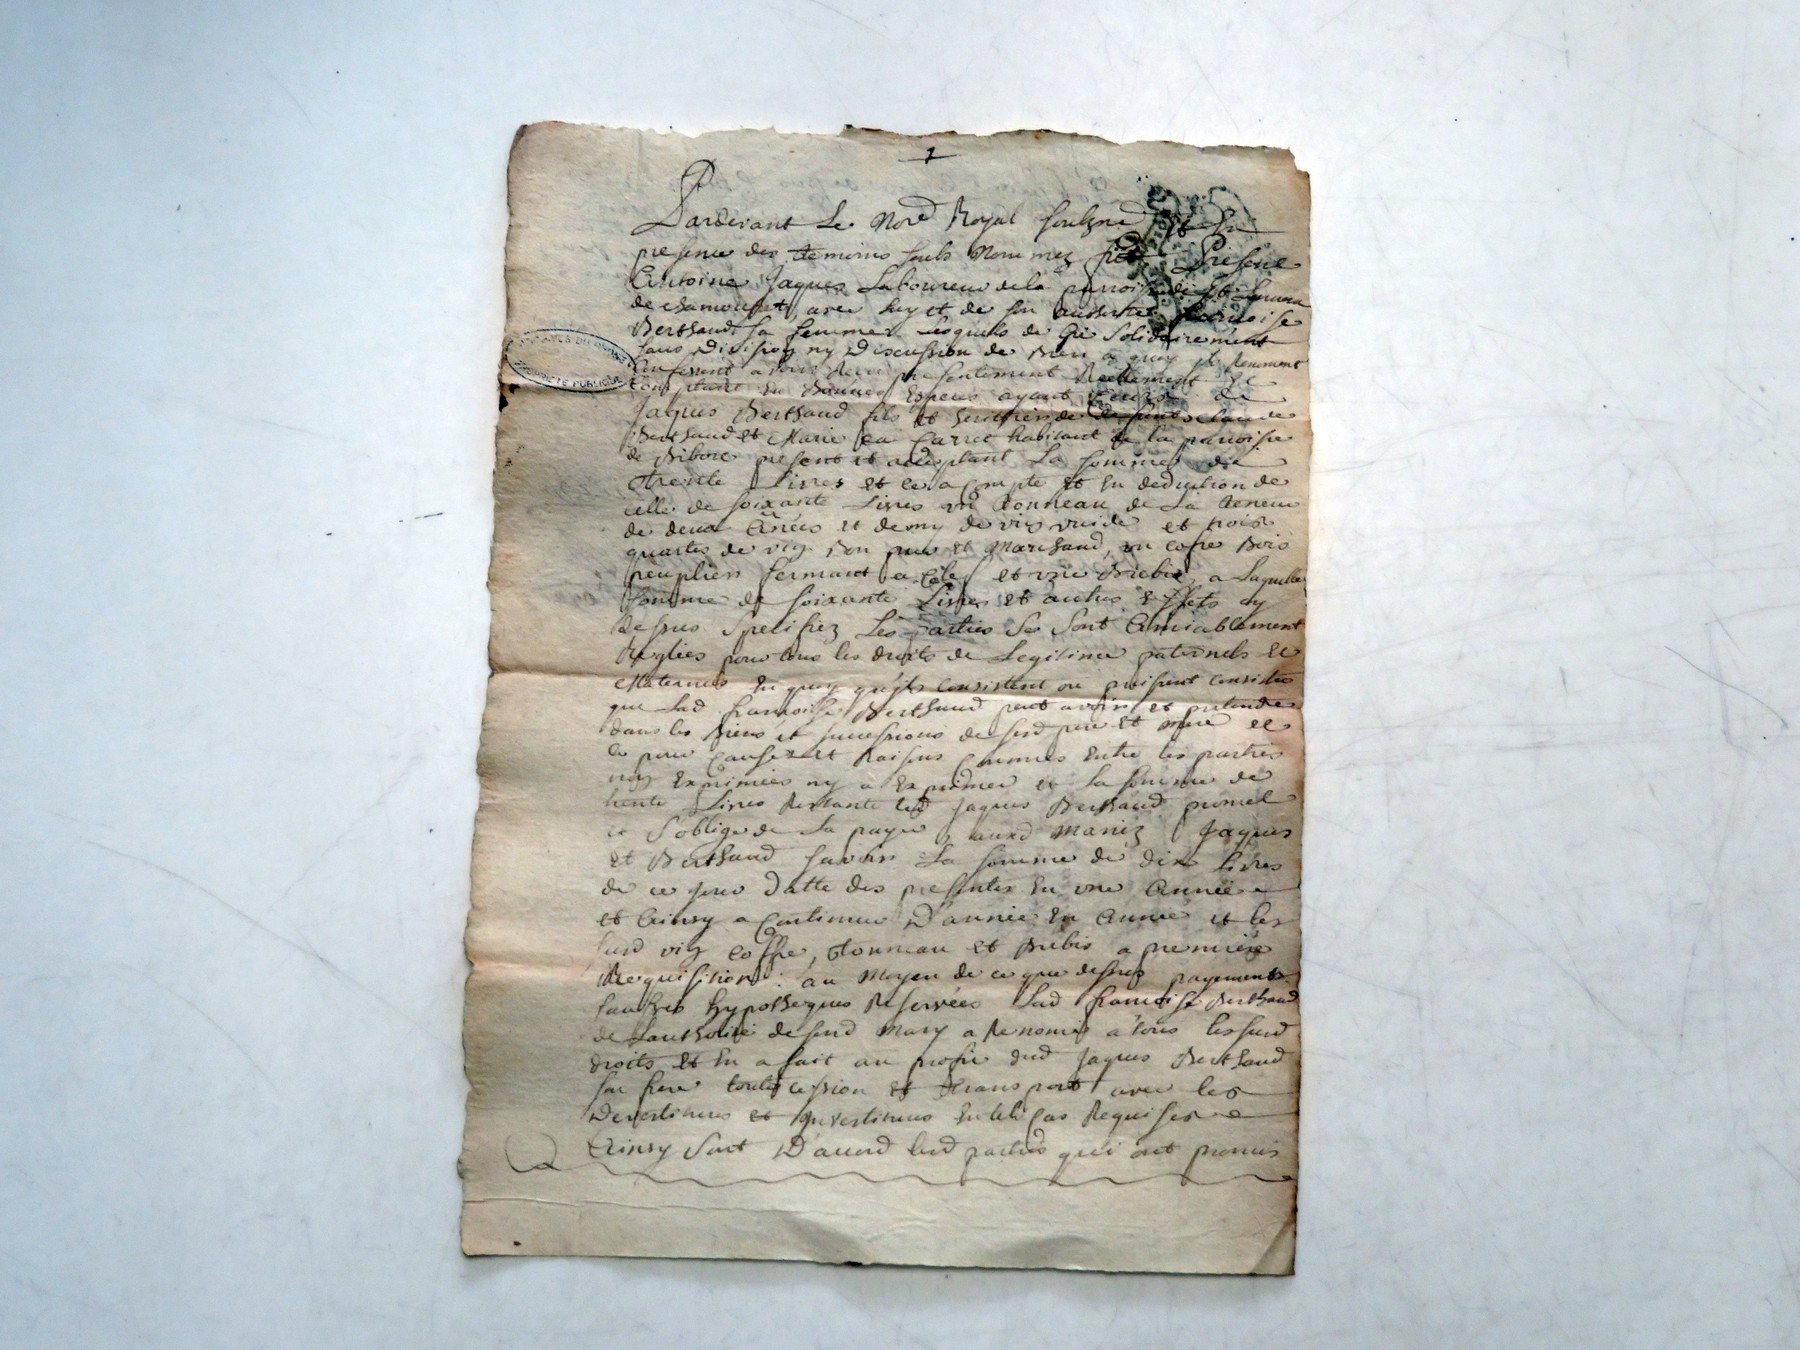 1
Pardevant Le Nore Royal soubzné et En
presence des temoins soubs Nommez fut Present
Antoine Jaques Laboureur de la parroisse de St Laurent
de chamousset, avec luy et de son authorité francoise
Berthaud sa femme Lesquels de Gré Solidairement
sans Division ny Discussion de Bien a quoy ils Renoncent
Confessent avoir Receu presentement Reellement et
Comptant En Bonnes Especes ayant Cours de
Jaques Berthaud fils et heritier de defunts Claude
Berthaud et Marie la Carret habitant de la parroisse
de present et acceptant La somme de
trente Livres et ce a Compte et En deduction de
celle de soixante Livres un Tonneau de La Teneur
de deux Anées et demy de vin vuide et trois
quartes de vin Bon pur et Marchand, un cofre Bois
peuplier fermant a clef et une Brebis, a Laquelle
somme de soixante Livres et autres Effets cy
dessus Specifiez Les parties Se Sont Amiablement
Reglées pour tous les droits de Legitime paternels et
Maternels En quoy qu'ils consistent ou puissent consister
que Lad francoise Berthaud peut avoir et pretendre
dans les Biens et successions de sesd pere et mere et
ce pour Causes et Raisons Connues Entre les parties
non Exprimées ny a Exprimer et La somme de
trente Livres Restante led Jaques Berthaud promet
et S'oblige de La payer auxd Mariez Jaques
et Berthaud savoir La somme de dix Livres
de ce jour Datte des presentes En une Année
et Ainsy a Continuer D'année En Année et les
susd vin coffre, Tonneau et Brebis a premiere
Requisition: au Moyen de ce que dessus payement
sans hypotheques Reservées Lad francoise Berthaud
de L'authorité de sond Mary a Renoncé a tous lessusd
droits et En a fait au profit dud Jaques Berthaud
son frere toute cession et Transport avec les
Devestitures et Investitures En tels Cas Requises
Ainsy Sont D'accord lesd parties qui ont promis